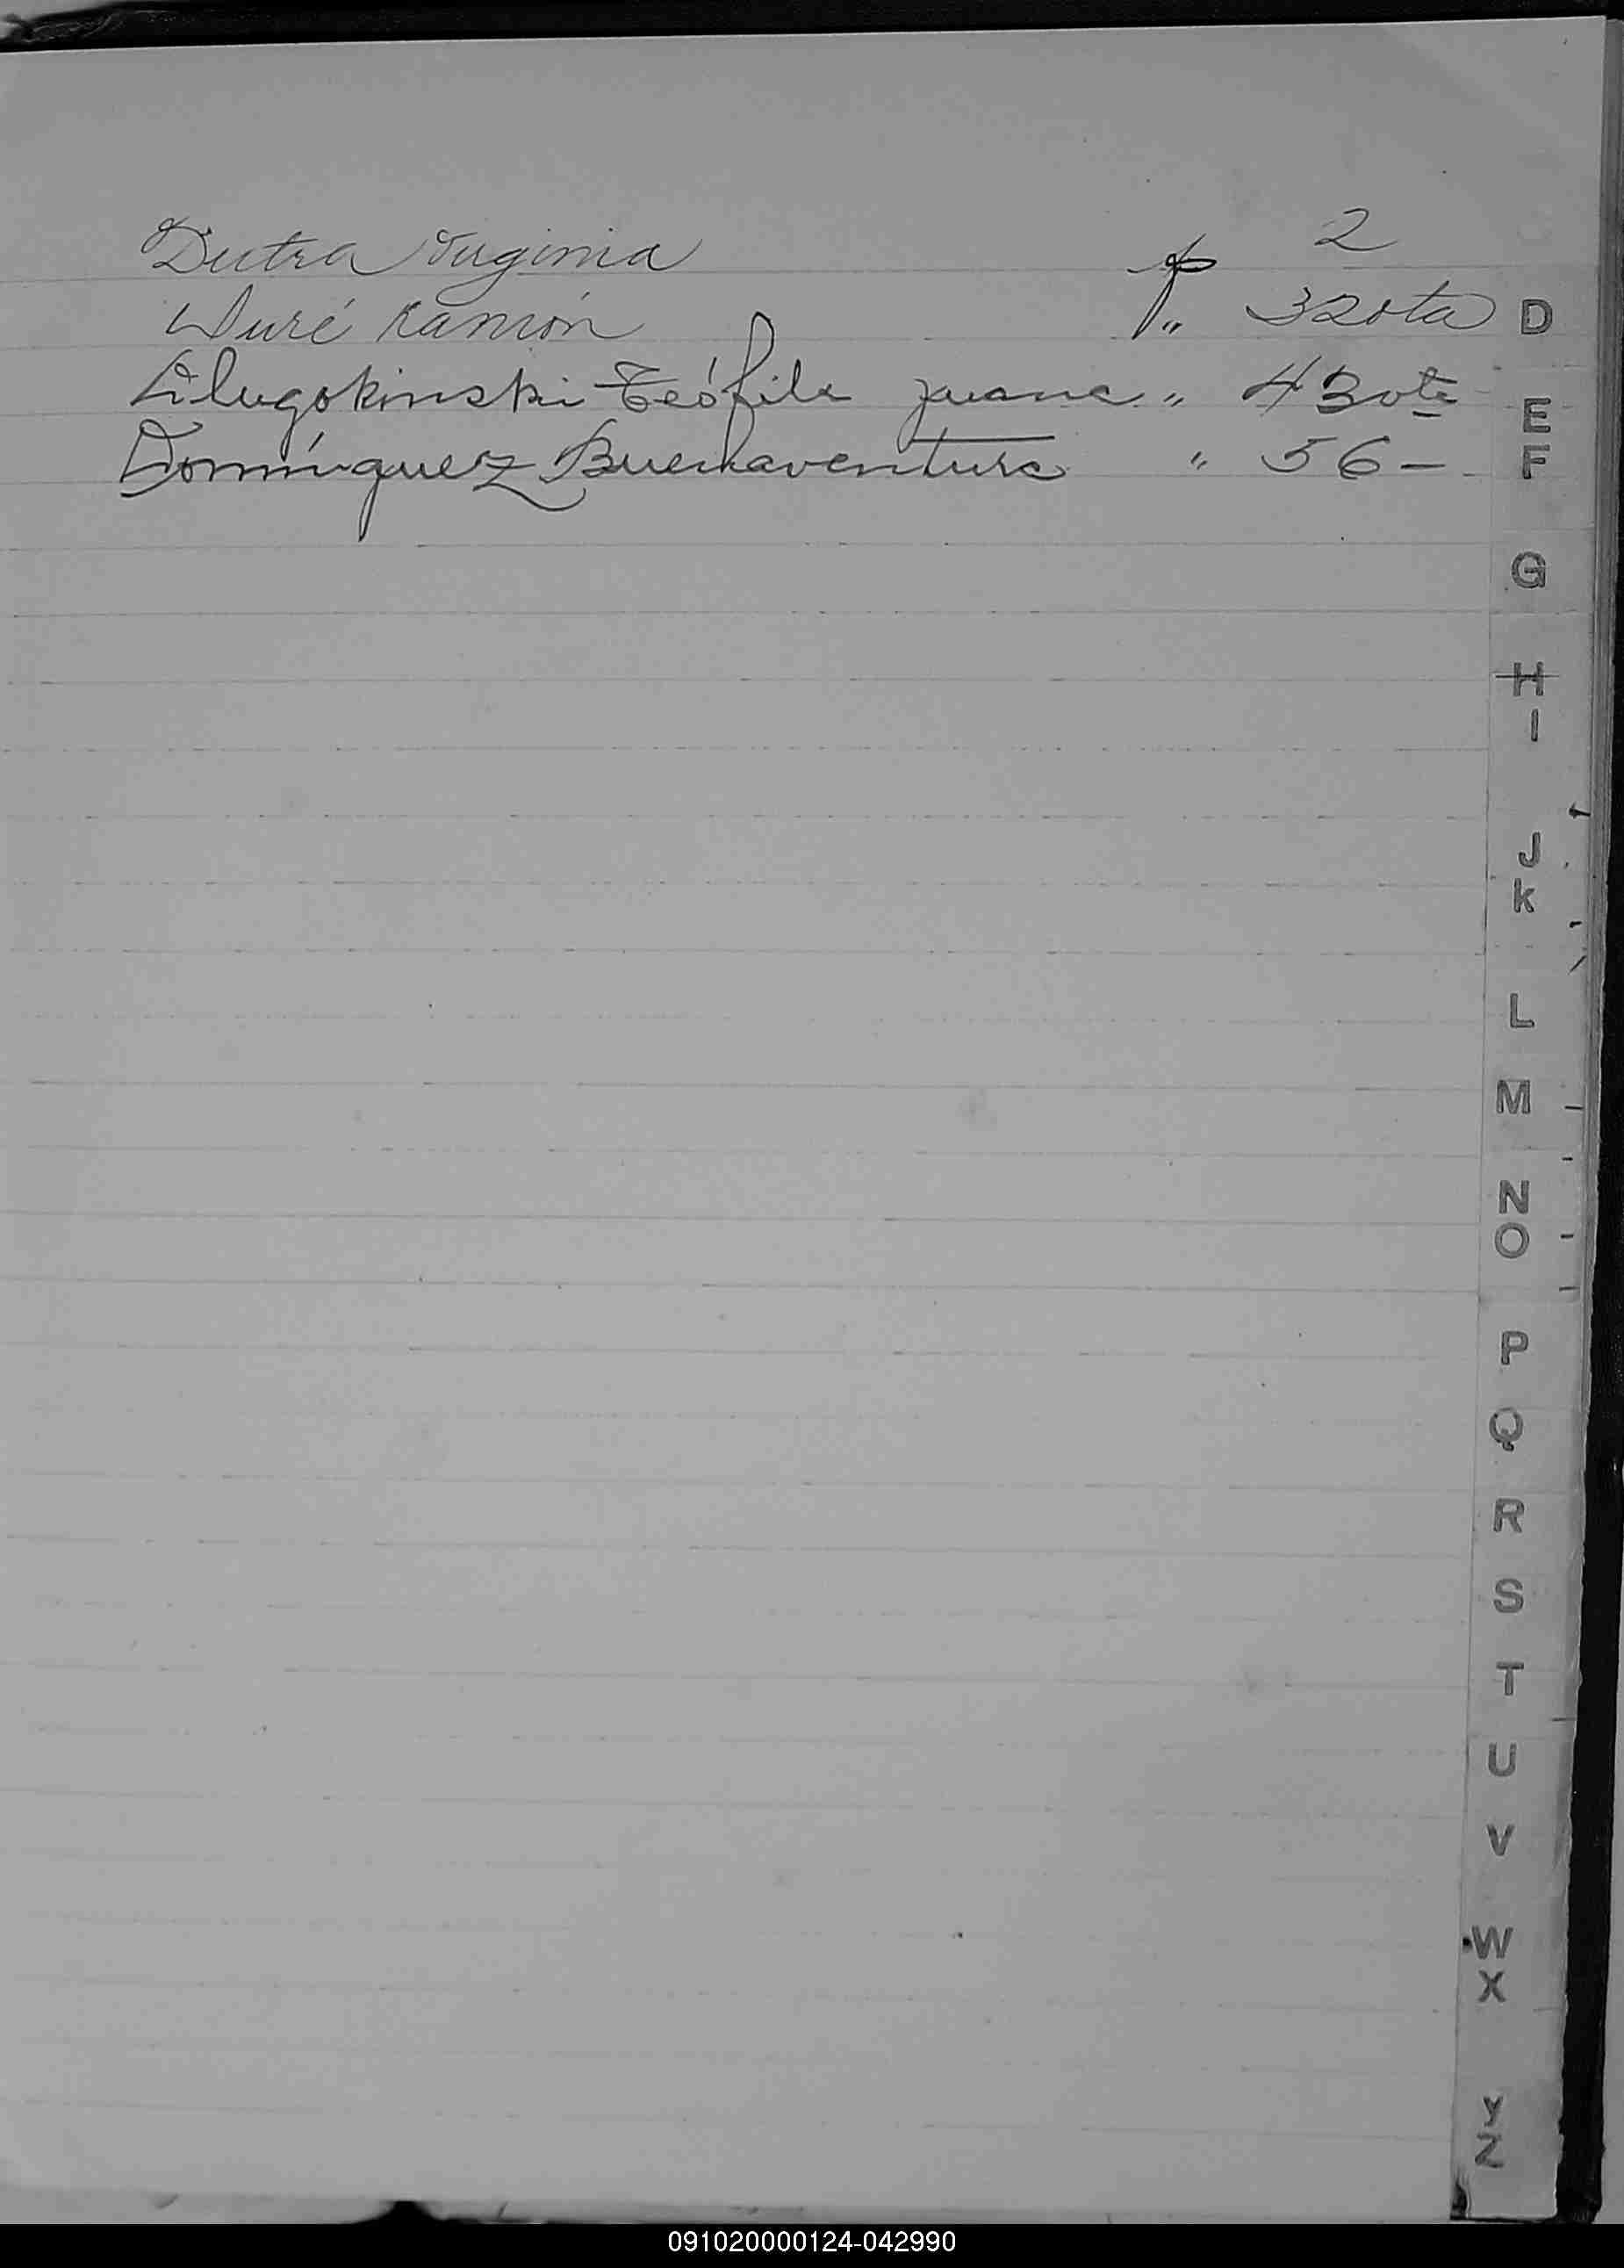 Dutra Virginia 2
Duré Ramón " 32 vta
Dlugokinski Teófila Juana " 43 vta
Domínguez Buenaventura " 56 -
D
E
F
G
H
I
J
K
L
M
N
O
P
Q
R
S
T
U
V
W
X
Y
Z
091020000124-042990